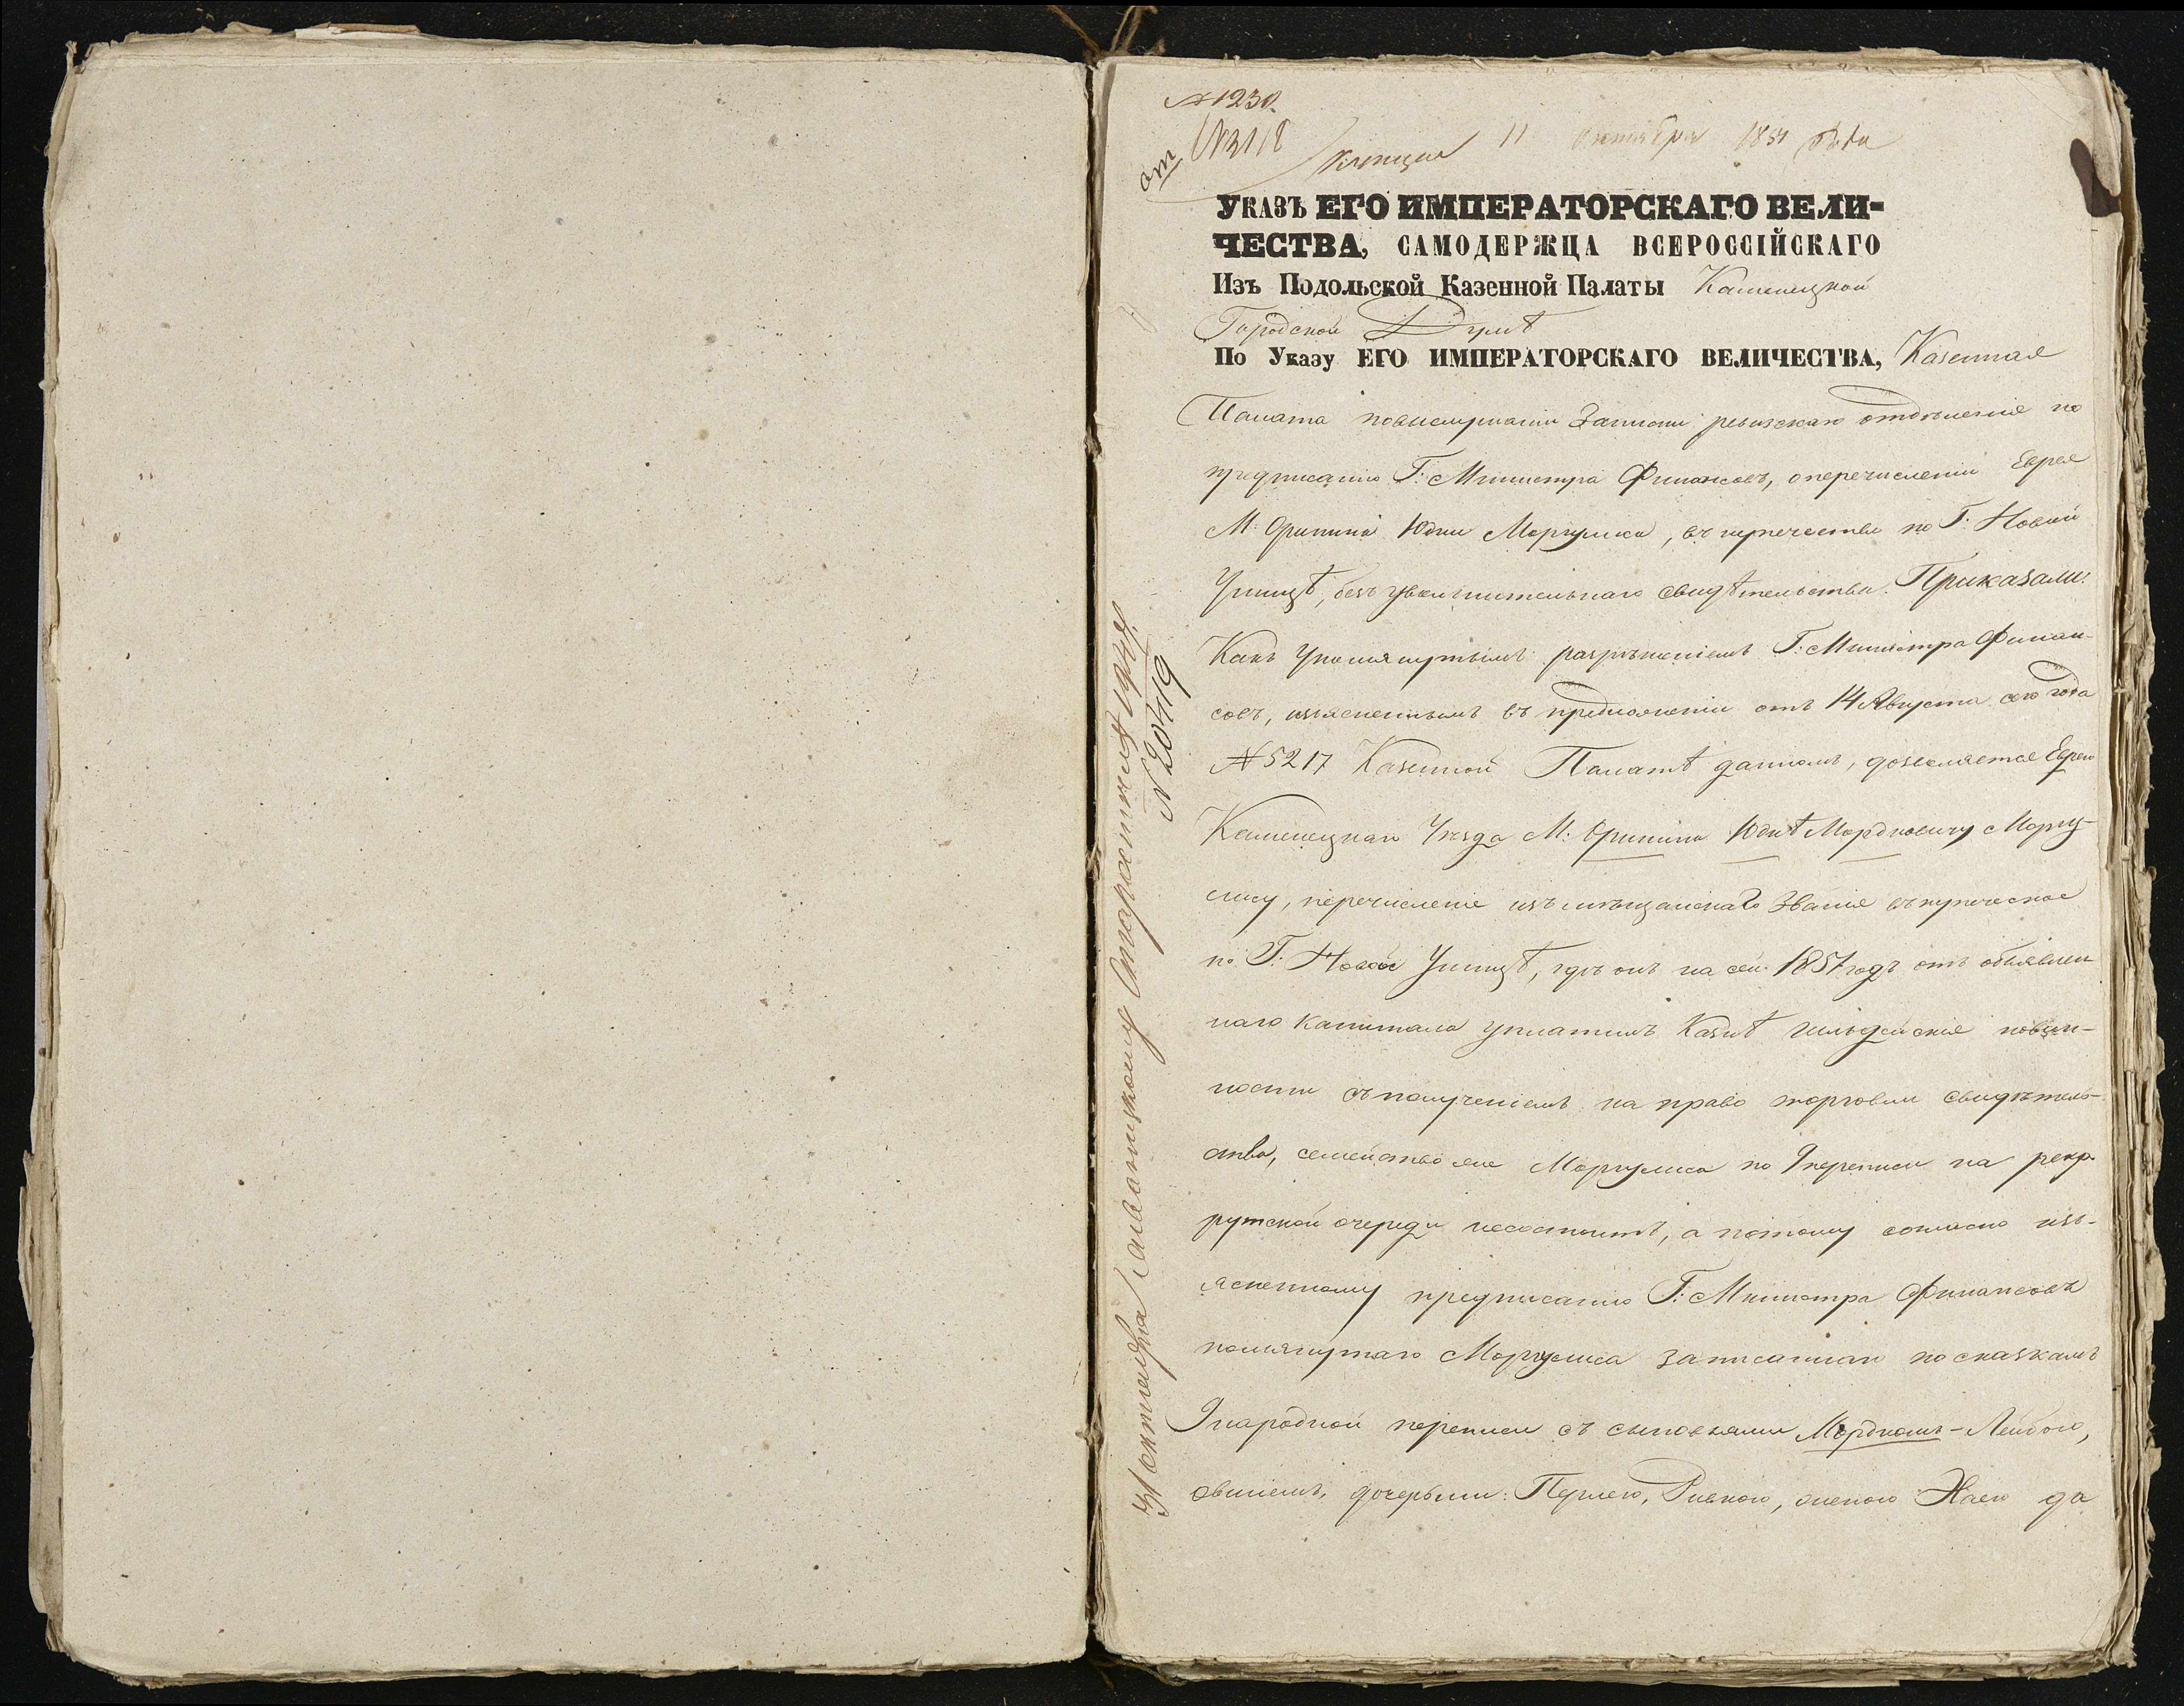 № 1230.
от
11 октября 1857 года
Указъ ЕГО ИМПЕРАТОРСКАГО ВЕЛИ-
ЧЕСТВА, САМОДЕРЖЦА ВСЕРОССІЙСКАГО
Изъ Подольской Казенной Палаты Каменецкой
Городской Думѣ
По Указу ЕГО ИМПЕРАТОРСКАГО ВЕЛИЧЕСТВА, Казенная
Палата повыслушаніи Записки ревизскаго отдѣленія по
предписанію Г: Министра Финансовъ, оперечисленіи Еврея
М: Оринина Юдки Маргулиса, въ купечество по Г: Новой
Ушицѣ, безъ увольнительнаго свидѣтельства. Приказали:
Какъ упомянутымъ разрѣшеніемъ Г: Министра Финан-
совъ, изъясненнымъ въ предложеніи отъ 14 Августа сего года
№ 5217 Казенной Палатѣ данномъ, дозволяется Еврею
Каменецкаго Уѣзда М: Оринина Юдкѣ Мордковичу Маргу-
лису, перечисленіе изъ мѣщанскаго званія въ купеческое
по Г: Новой Ушицѣ, гдѣ онъ на сей 1857 годъ отъ объявлен
наго капитала уплатилъ Казнѣ гильдейскія повин-
ности съ полученіемъ на право торговли свидѣтель-
ства, семейство же Маргулиса по 9 переписи на рекр
рутской очереди несостоитъ, а потому согласно изъ-
ясненному предписанію Г: Министра Финансовъ
помянутаго Маргулиса записаннаго по сказкамъ
9 народной переписи съ сыновьями Мордкомъ-Лейбою,
дочерьми: Перлею, Ривкою, женою Хаею да
31 октября Старостѣ
№ 20419